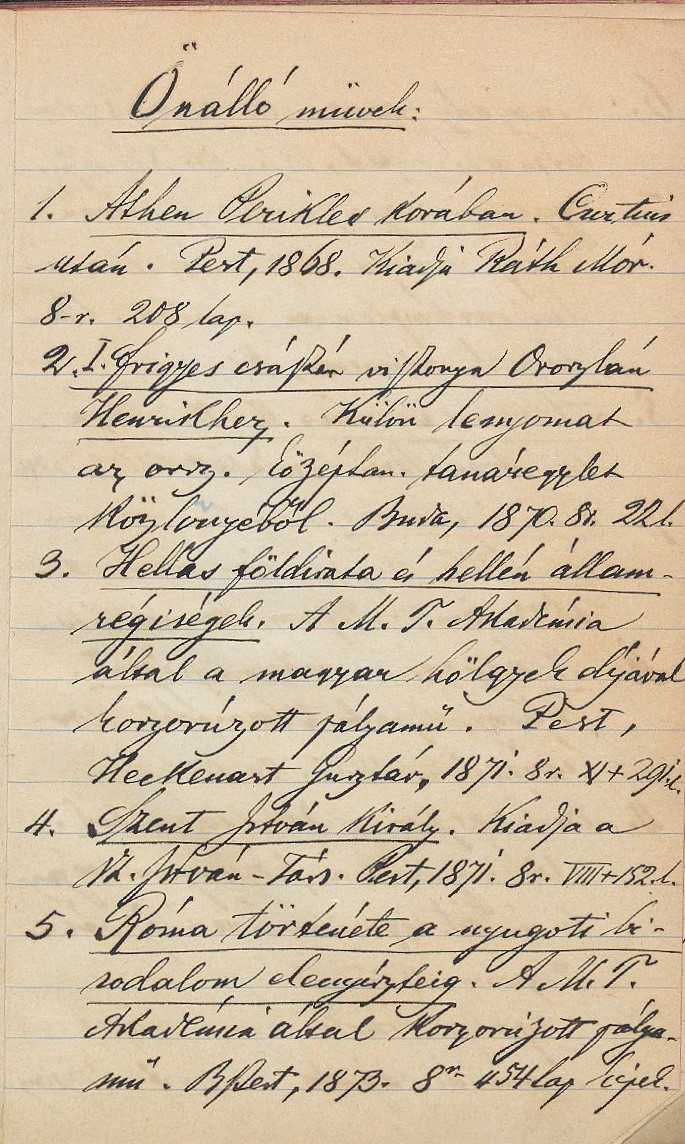 Önálló müvek:
1. Athen Perikles korában. Curtius
után. Pest, 1868. Kiadja Ráth Mór.
8-r. 208 lap.
2. I. Frigyes császár viszonya Oroszlán
Henrikhez. Külön lenyomat
az orsz. középtan. tanáregylet
közlönyéből. Buda, 1870. 8r. 22 l.
3. Hellas földirata és hellén állam-
régiségek. A M. T. Akadémia
által a magyar hölgyek díjával
koszorúzott pályamű. Pest,
Heckenast Gusztáv, 1871. 8r. XI+291.l.
4. Szent István Király. Kiadja a
Sz. István-Társ. Pest, 1871. 8r. VIII+152.l.
5. Róma története a nyugoti bi-
rodalom elenyésztéig. A M. T.
Akadémia által Koszorúzott pálya-
mű. BPest, 1873. 8r 454 lap